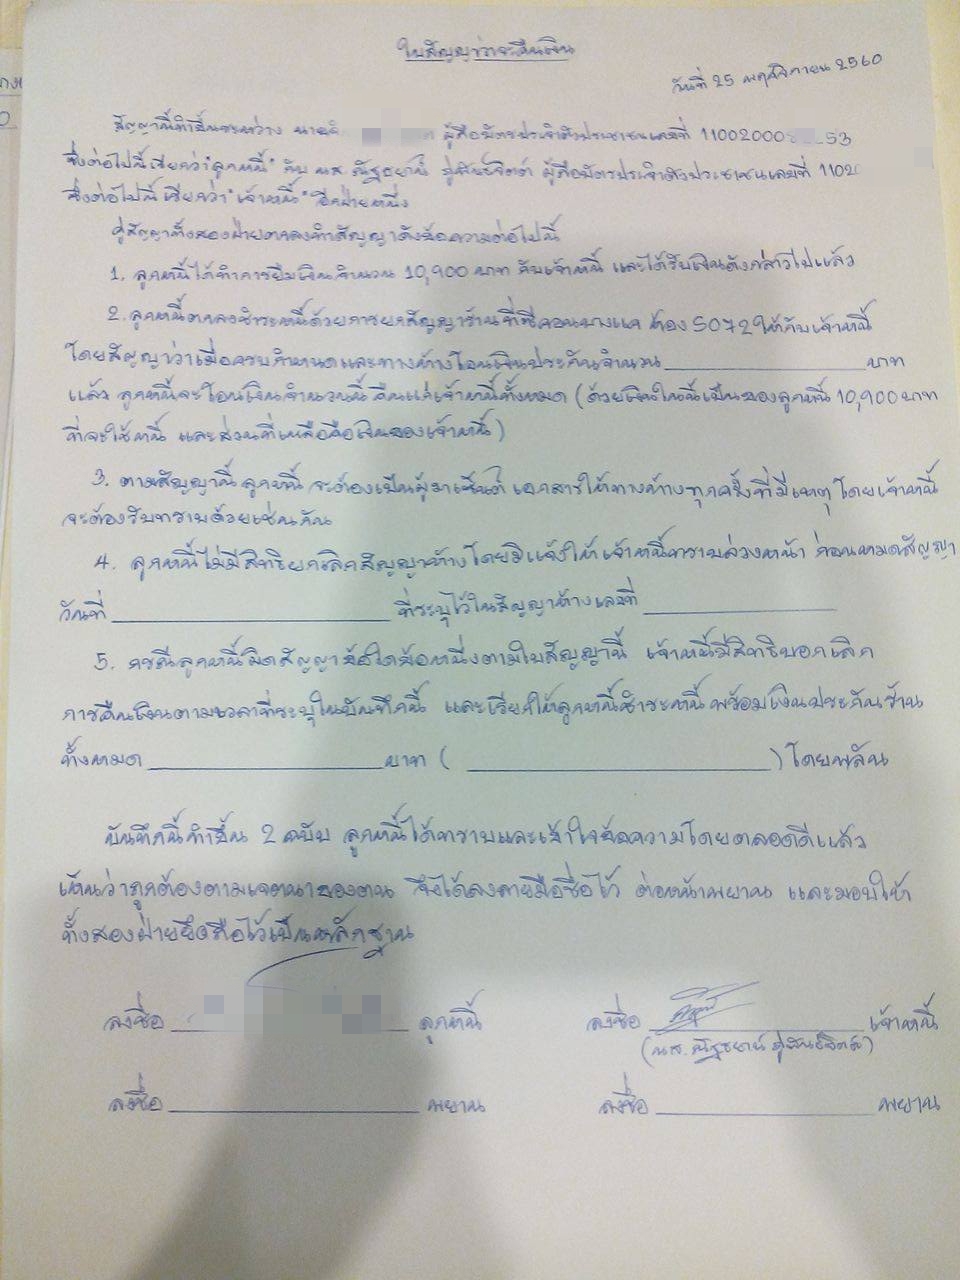 ใบสัญญาว่าจะคืนเงิน
วันที่ 25 พฤศจิกายน 2560
สัญญานี้ทำขึ้นระหว่าง นาย ผู้ถือบัตรประจำตัวประชาชนเลขที่ 11002000 53
ซึ่งต่อไปนี้เรียกว่า "ลูกหนี้" กับ น.ส. ณัฐธยาน์ ภู่พันธ์จิตต์ ผู้ถือบัตรประจำตัวประชาชนเลขที่ 1102
ซึ่งต่อไปนี้เรียกว่า "เจ้าหนี้" อีกฝ่ายหนึ่ง
คู่สัญญาทั้งสองฝ่ายตกลงทำสัญญาดังข้อความต่อไปนี้
1. ลูกหนี้ได้ทำการยืมเงินจำนวน 10,900 บาท กับเจ้าหนี้ และได้รับเงินดังกล่าวไปแล้ว
2. ลูกหนี้ตกลงชำระหนี้ด้วยการยกสัญญาร้านที่ซีคอนบางแค ห้อง S072 ให้กับเจ้าหนี้
โดยสัญญาว่าเมื่อครบกำหนดและทางห้างโอนเงินประกันจำนวน บาท
แล้ว ลูกหนี้จะโอนเงินจำนวนนี้คืนแก่เจ้าหนี้ทั้งหมด (ด้วยเงินในนี้เป็นของลูกหนี้ 10,900 บาท
ที่จะใช้หนี้ และส่วนที่เหลือคือเงินของเจ้าหนี้)
3. ตามสัญญานี้ ลูกหนี้ จะต้องเป็นผู้มาเซ็นต์เอกสารให้ทางห้างทุกครั้งที่มีเหตุ โดยเจ้าหนี้
จะต้องรับทราบด้วยเช่นกัน
4. ลูกหนี้ไม่มีสิทธิยกเลิกสัญญาห้างโดยมิแจ้งให้เจ้าหนี้ทราบล่วงหน้า ก่อนหมดสัญญา
วันที่ ที่ระบุไว้ในสัญญาห้างเลขที่
5. กรณีลูกหนี้ผิดสัญญาข้อใดข้อหนึ่งตามใบสัญญานี้ เจ้าหนี้มีสิทธิบอกเลิก
การคืนเงินตามเวลาที่ระบุในบันทึกนี้ และเรียกให้ลูกหนี้ชำระหนี้พร้อมเงินประกันร้าน
ทั้งหมด บาท ( ) โดยพลัน
บันทึกนี้ทำขึ้น 2 ฉบับ ลูกหนี้ได้ทราบและเข้าใจข้อความโดยตลอดดีแล้ว
เห็นว่าถูกต้องตามเจตนาของตน จึงได้ลงลายมือชื่อไว้ ต่อหน้าพยาน และมอบให้
ทั้งสองฝ่ายยึดถือไว้เป็นหลักฐาน
ลงชื่อ ลูกหนี้ ลงชื่อ เจ้าหนี้
(น.ส. ณัฐธยาน์ ภู่พันธ์จิตต์)
ลงชื่อ พยาน ลงชื่อ พยาน